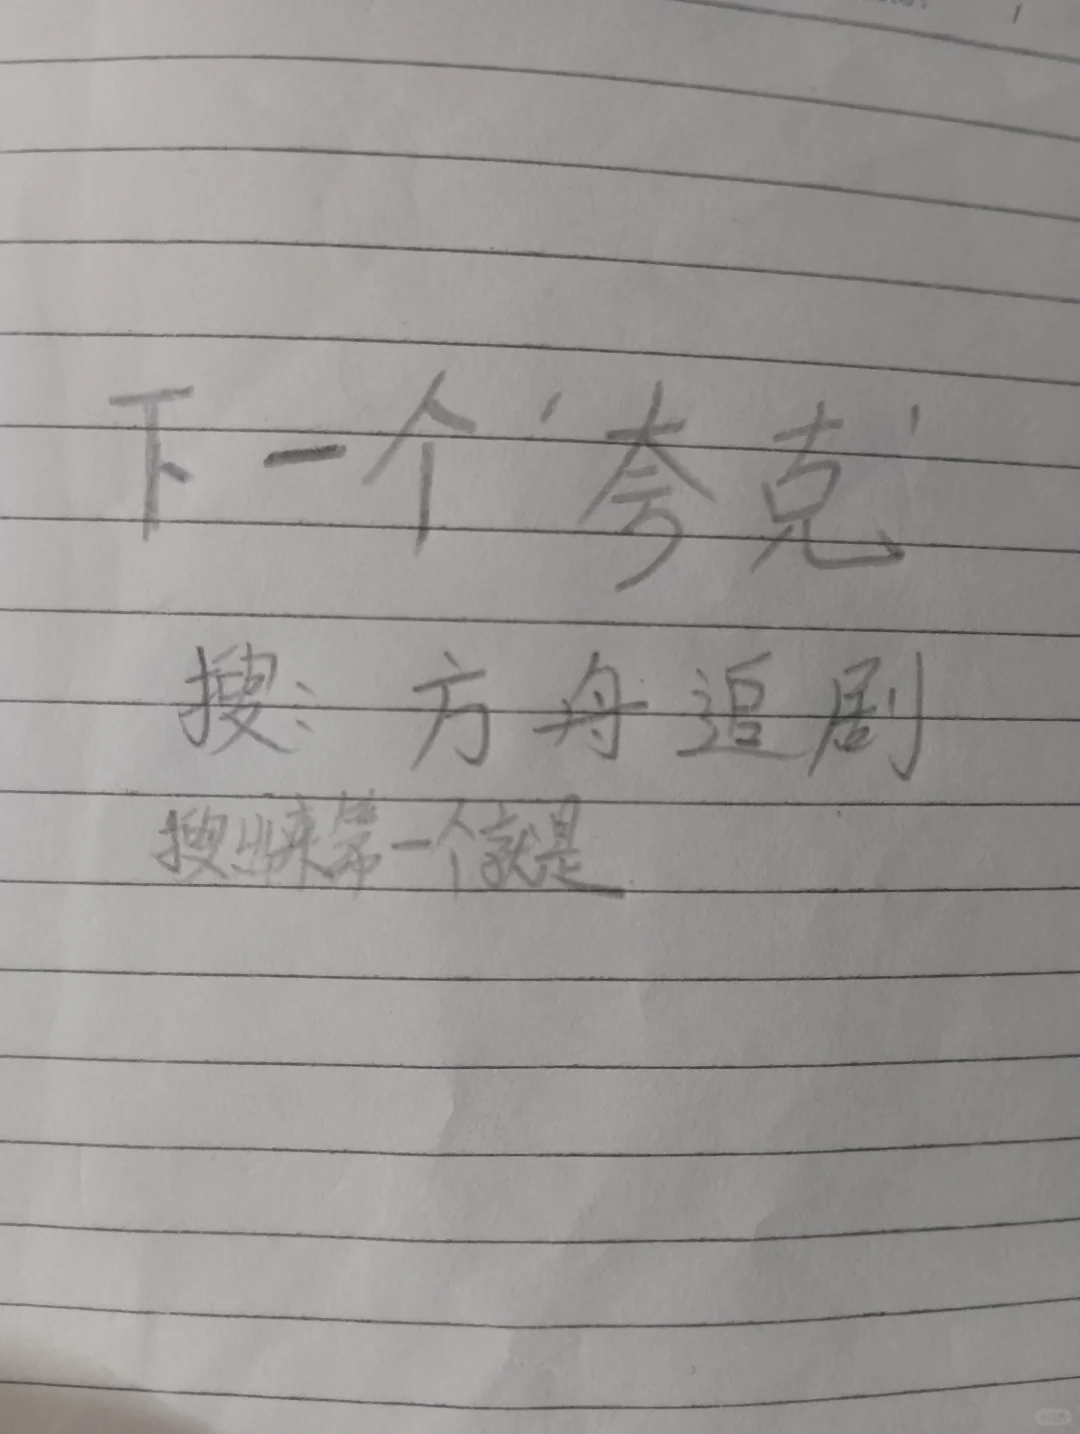 下一个‘夸克’
搜：方舟追剧
搜出来第一个就是